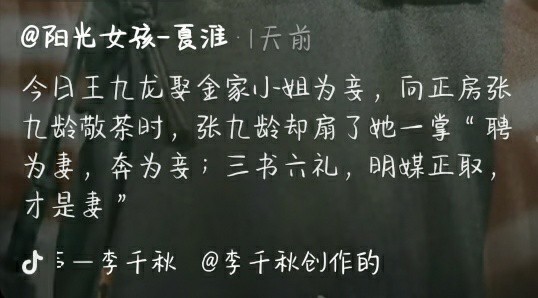 @阳光女孩-夏淮 · 1天前
今日王九龙娶金家小姐为妾，向正房张
九龄敬茶时，张九龄却扇了她一掌“聘
为妻，奔为妾；三书六礼，明媒正取，
才是妻”
一李千秋 @李千秋创作的